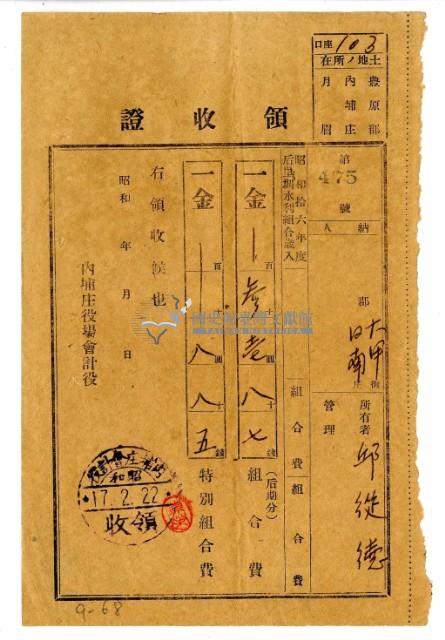 口座 103
土地ノ所在
豊原郡
內埔庄
月眉
領收證
第 475 號
納人
郡 大甲
街庄 日南
所有者 邱從德
管理
昭和拾六年度
后里圳水利組合歲入
組合費 組合費
一金 百 参十 壱圓 八十 七錢 組合費
(后期分)
一金 百 十 八圓 八十 五錢 特別組合費
右領收候也
昭和 年 月 日
內埔庄役場會計役
內埔庄會計役
昭和
17.2.22
領收
國史館臺灣文獻館
9-68